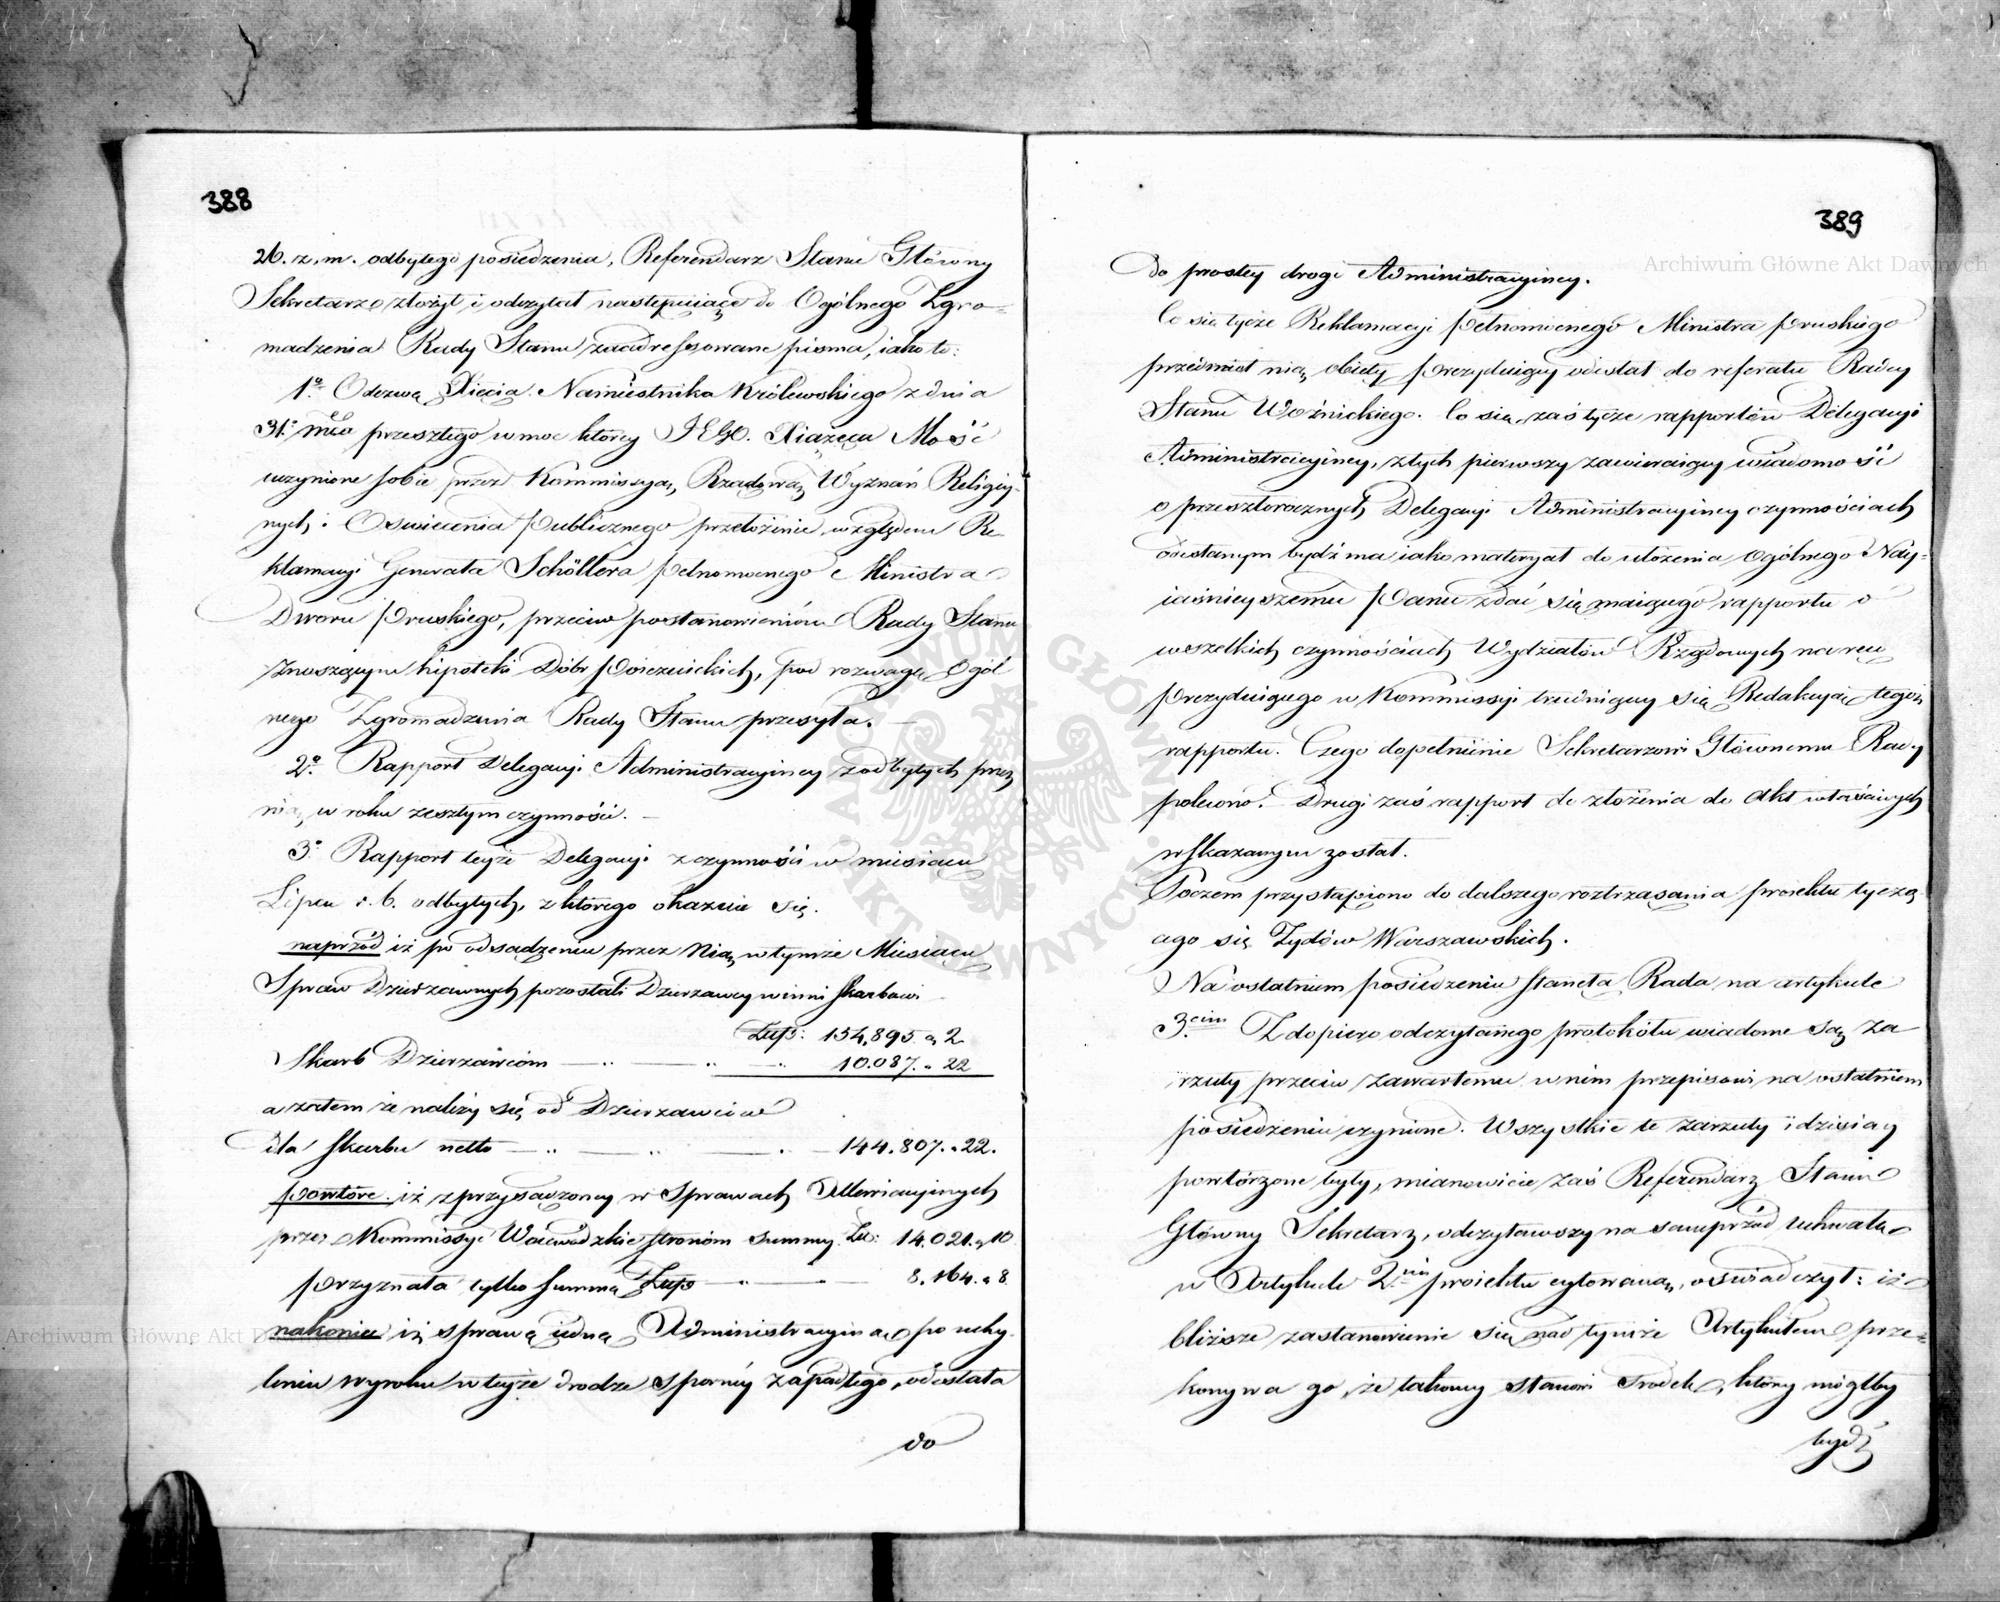 388
26. z. m. odbytego posiedzenia, Referendarz Stanu Główny
Sekretarz złożył i odczytał następuiące do Ogólnego Zgro-
madzenia Rady Stanu zaadressowane pisma, iako to:
1o. Odezwę Xięcia Namiestnika Królewskiego z dnia
31o. mca przeszłego w moc którey JEGO. Xiążęca Mość
uczynione sobie przez Kommissyą Rządową Wyznań Religiy-
nych i Oświecenia Publicznego przełożenie względem Re-
klamacyi Generała Schöllera pełnomocnego Ministra
Dworu Pruskiego, przeciw postanowieniom Rady Stanu
znoszącym hipoteki Dóbr, pod rozwagę Ogól
nego Zgromadzenia Rady Stanu przesyła. —
2o. Rapport Delegacyi Administracyiney z odbytych przez
nią w roku zeszłym czynności. —
3o. Rapport teyże Delegacyi z czynności w miesiącu
Lipcu r. b. odbytych, z którego okazuie się.
naprzód iż po odsądzeniu przez Nią w tymże Miesiącu
Spraw Dzierzawnych pozostali Dzierzawcy winni Skarbowi
Złp: 154,895 „ 2
Skarb Dzierzawcom — „ — „ — „ 10.087. „ 22
a zatem że należy się od Dzierzawców
dla Skarbu netto — „ — „ — „ — 144.807. „ 22.
powtóre iż z przysądzoney w Sprawach Allewiacyinych
przez Kommissye Woiewódzkie stronom summy Złp: 14.021. „ 10
przyznała tylko summę Złp — „ — „ — 8.164. „ 8
nakoniec iż sprawę iedną Administracyiną po uchy-
leniu wyroku w teyże drodze sporney zapadłego, odesłała
do
389
do prostey drogi Administracyiney.
Co się tycze Reklamacyi Pełnomocnego Ministra Pruskiego
przedmiot nią obięty Prezyduiący odesłał do referatu Radcy
Stanu Woźnickiego. Co się zaś tycze rapportów Delegacyi
Administracyiney, z tych pierwszy zawieraiący wiadomość
o przeszłorocznych Delegacyi Administracyiney czynnościach
odesłanym bydź ma iako materyał do ułożenia ogólnego Nay-
iaśnieyszemu Panu zdać się maiącego rapportu o
wszelkich czynnościach Wydziałów Rządowych na ręce
Prezyduiącego w Kommissyi trudniącey się Redakcyią tegoż
rapportu. Czego dopełnienie Sekretarzowi Głównemu Rady
polecono. Drugi zaś rapport do złożenia do Akt właściwych
wskazanym został.
Poczem przystąpiono do dalszego roztrząsania proiektu tyczą-
cego się Żydów Warszawskich.
Na ostatniem posiedzeniu stanęła Rada na artykule
3cim Z dopiero odczytanego protokółu wiadome są za
rzuty przeciw zawartemu w nim przepisowi na ostatniem
posiedzeniu czynione. Wszystkie te zarzuty i dzisiay
powtórzone były, mianowicie zaś Referendarz Stanu
Główny Sekretarz, odczytawszy na samprzód uchwałę
w Artykule 2im proiektu cytowaną, oświadczył: iż
bliższe zastanowienie się nad tymże Artykułem prze-
konywa go, że takowy stanowi środek, który mógłby
bydź